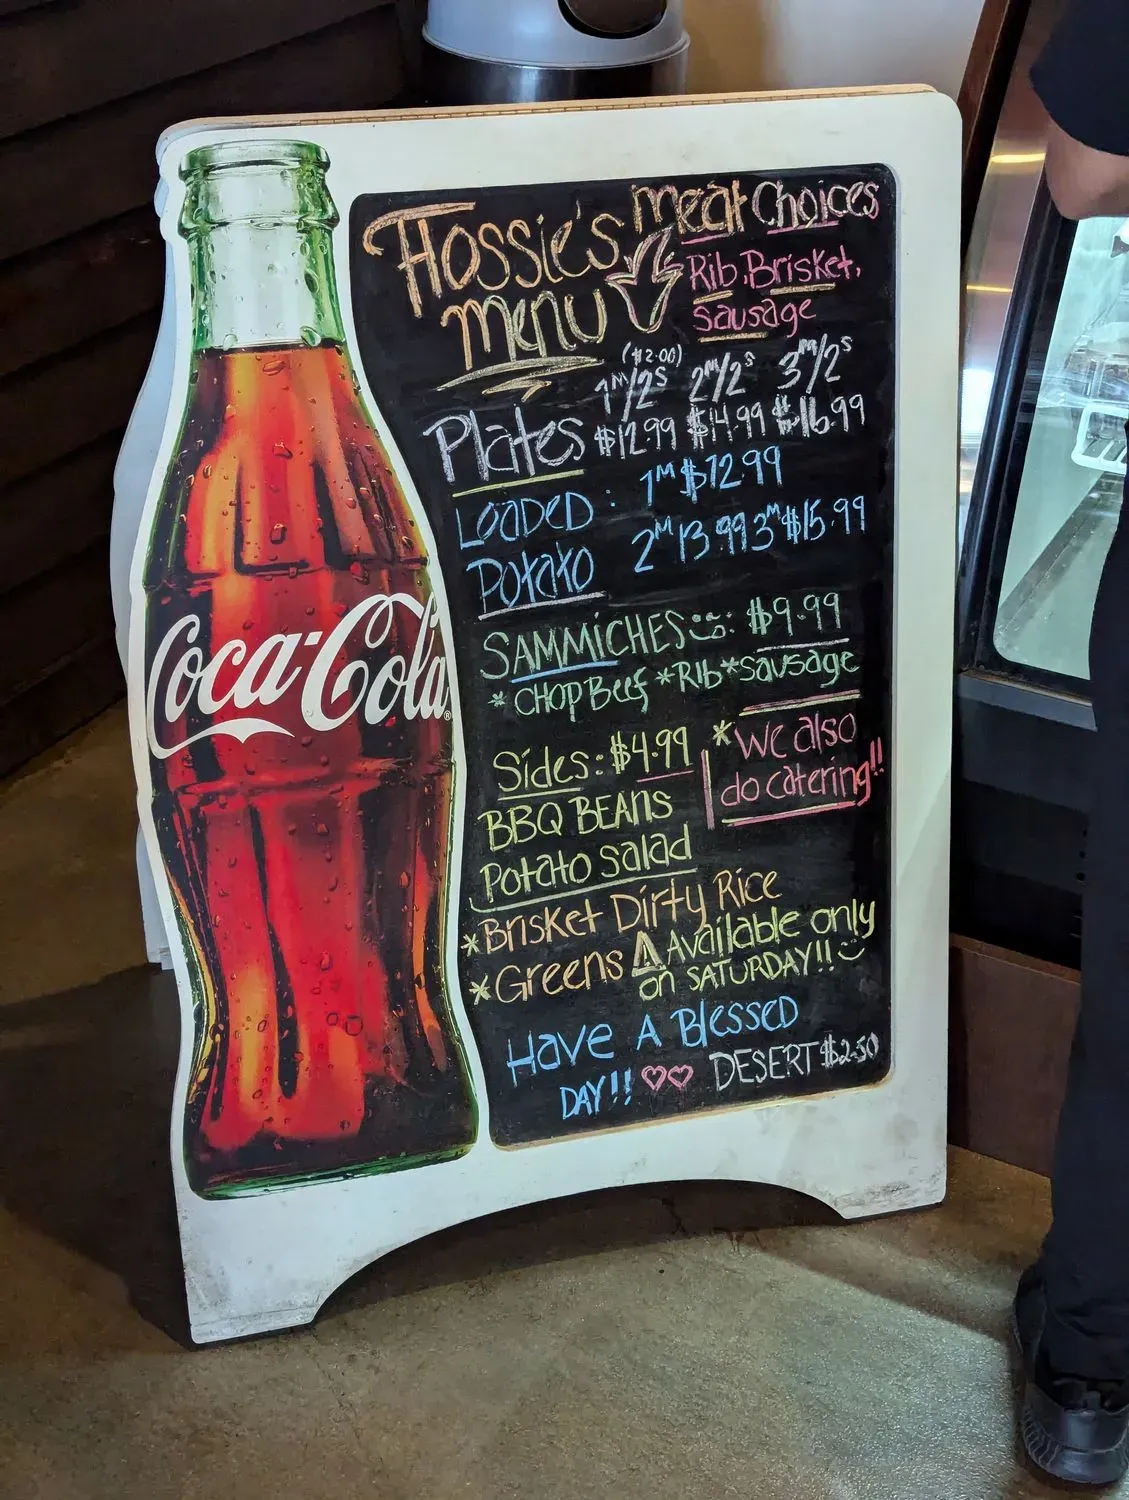 Coca-Cola
Flossie's
menu
meat Choices
Rib, Brisket,
Sausage
($2.00)
1M/2S 2M/2S 3M/2S
Plates $12.99 $14.99 $16.99
LOADED : 1M $12.99
POtato 2M 13.99 3M $15.99
SAMMiCHES : $9.99
* CHOP Beef * Rib * Sausage
Sides: $4.99
BBQ BEANS
Potato salad
* we also
do catering!!
* Brisket Dirty Rice
* Greens Available only
on SATURDAY!!
Have A Blessed
DAY!! DESERT $2.50